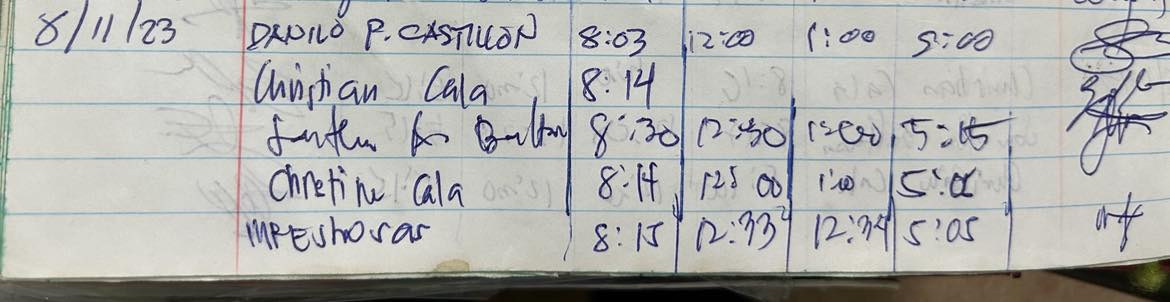 8/11/23 DANILO P. CASTILLON 8:03 12:00 1:00 5:00
Christian Cala 8:14
8:30 12:30 1:00 5:15
Christine Cala 8:14 12:00 1:00 5:00
8:15 12:33 12:34 5:05